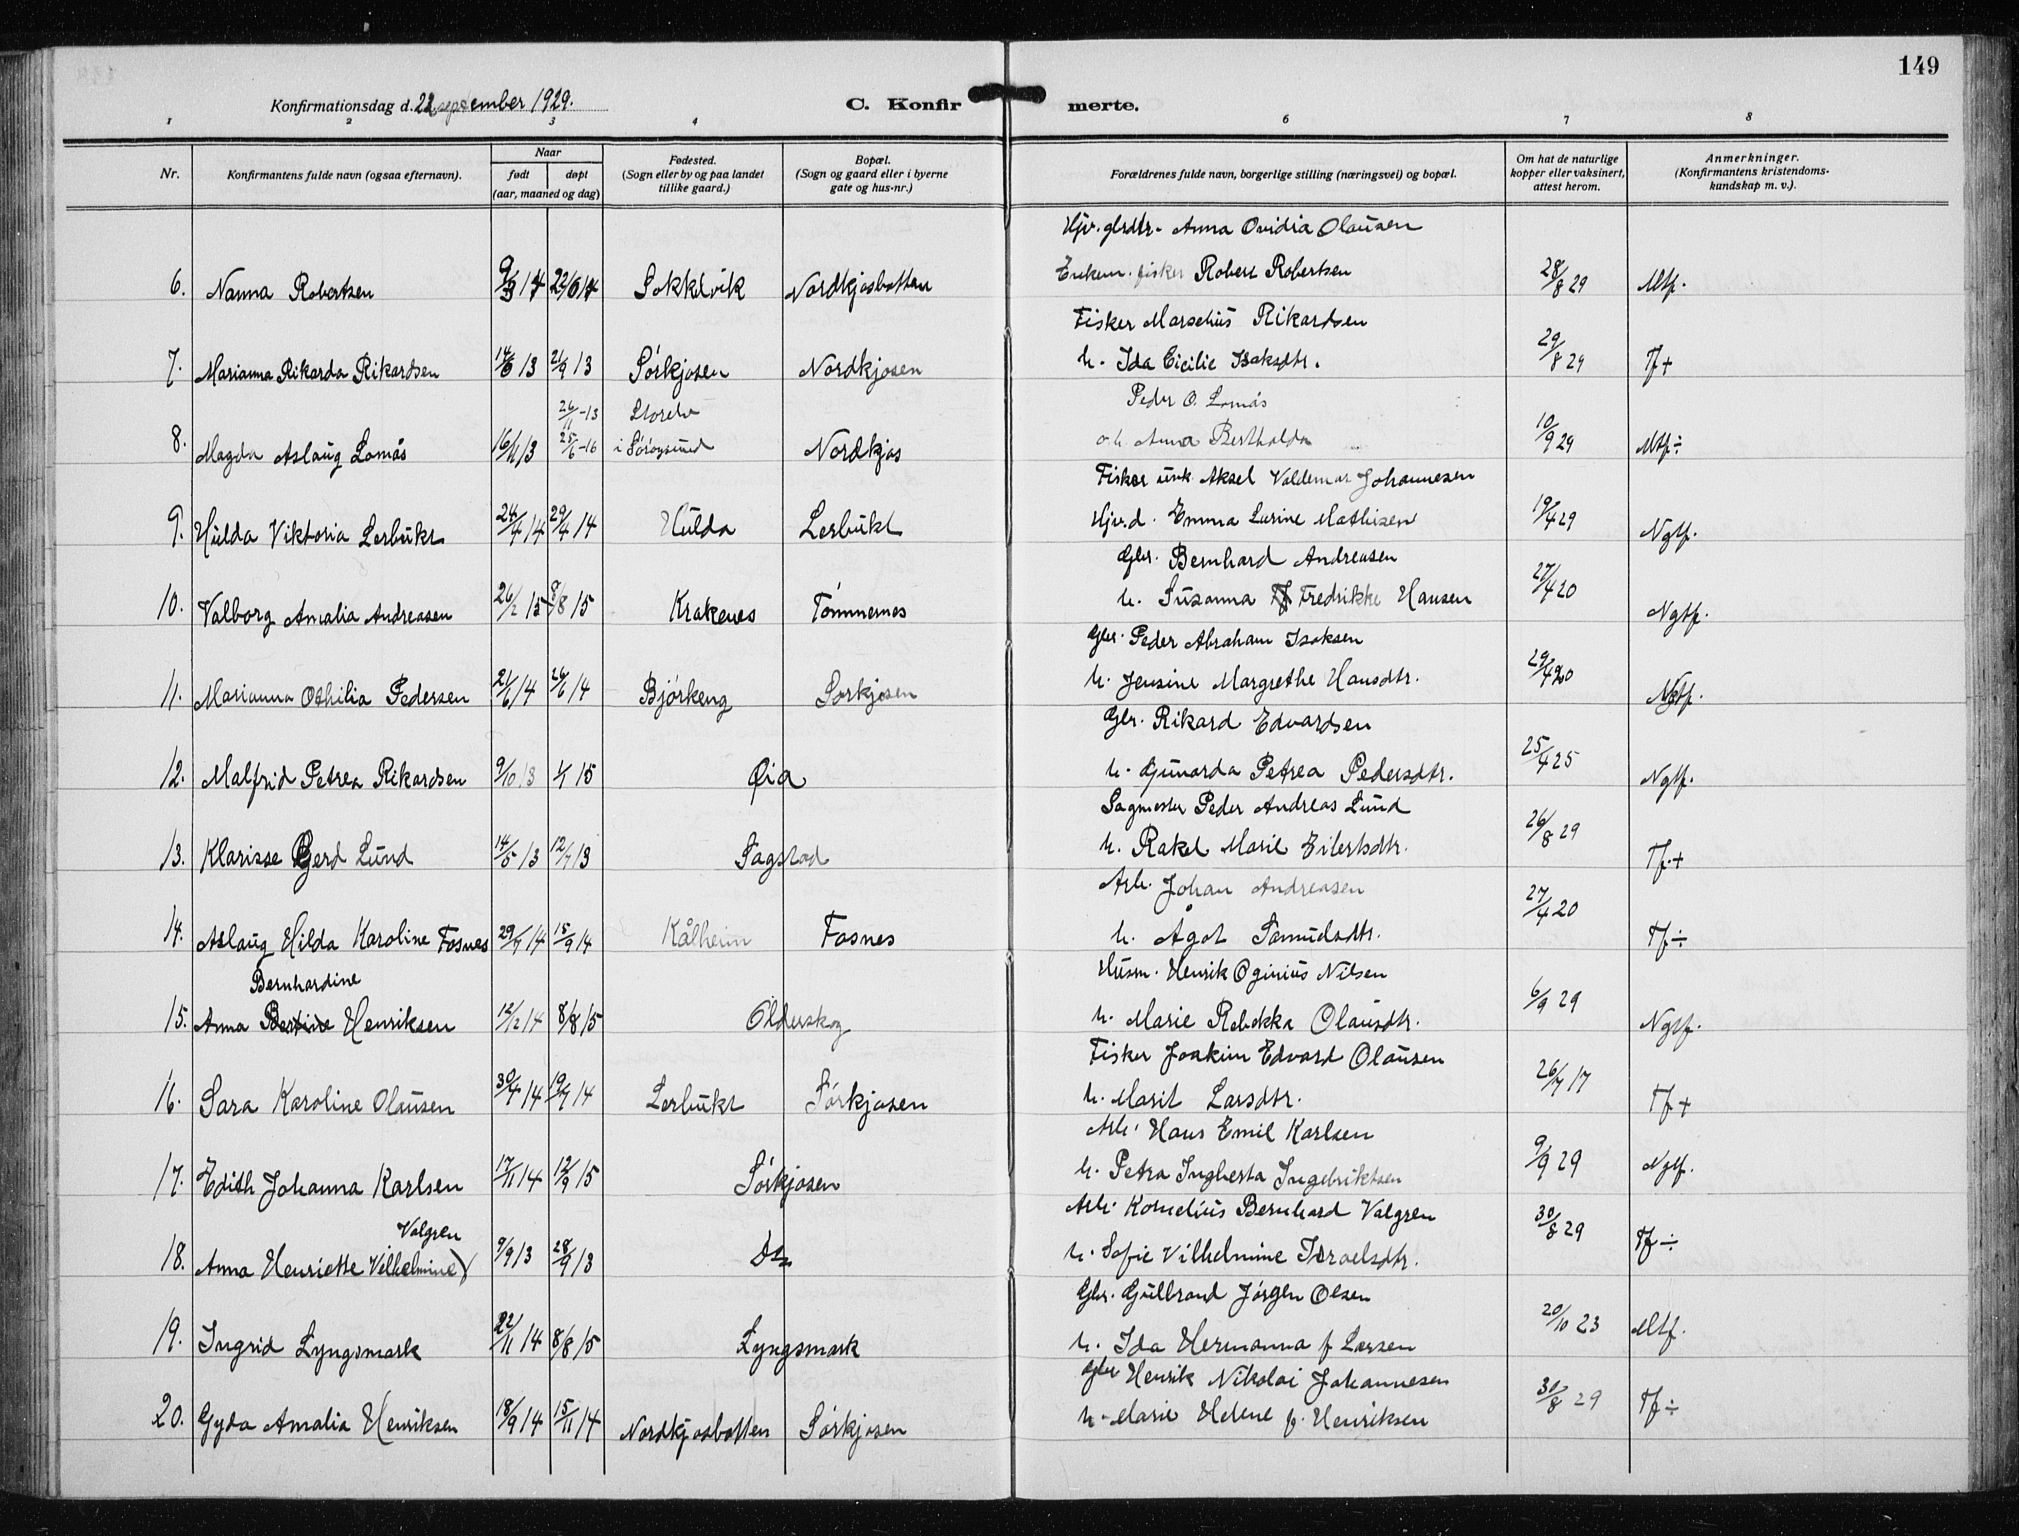 149
Konfirmationsdag d. 22 september 1929.
C. Konfirmerte.
1 2 3 4 6 7 8
Nr.
Konfirmantens fulde navn (ogsaa efternavn).
Naar
født
døpt
(aar, maaned og dag)
Fødested.
(Sogn eller by og paa landet
tillike gaard.)
Bopæl.
(Sogn og gaard eller i byerne
gate og hus-nr.)
Forældrenes fulde navn, borgerlige stilling (næringsvei) og bopæl.
Om hat de naturlige
kopper eller vaksinert,
attest herom.
Anmerkninger.
(Konfirmantens kristendoms-
kundskap m. v.).
Anna Ovidia Olausen
6. Nanna Robertsen Sokkelvik Nordkjosbotten fisker Robert Robertsen 28/8 29 Mtf.
Fisker Marselius Rikardsen
7. Marianna Rikarda Rikardsen 14/6 13 21/9 13 Sörkjosen Nordkjosen h. Ida Cicilie Isaksdtr. 29/8 29 Tf +
26/11 -13 Storelv Peder O. Lomås
8. Magda Aslaug Lomås 16/11 13 25/6 -16 i Söröysund Nordkjos o.h. Anna Bertholda 10/9 29 Mtf ÷
Fisker unk. Aksel Valdemar Johannesen
9. Hulda Viktoria Lerbukt 24/4 14 29/4 14 Hulda Lerbukt Emma Lurine Mathisen 19/4 29 Ngtf.
Gbr. Bernhard Andreasen
10. Valborg Amalia Andreasen 26/2 15 8/8 15 Krakenes Tömmernes h. Susanna Fredrikke Hansen 27/4 20 Ngtf.
Gbr. Peder Abraham Isaksen
11. Marianna Othilia Pedersen 21/6 14 26/6 14 Bjørkeng Sörkjosen h. Jensine Margrethe Hansdtr. 29/4 20 Ngtf.
Gbr. Rikard Edvardsen
12. Malfrid Petrea Rikardsen 9/10 13 4/1 15 Øia h. Gunarda Petrea Pedersdtr. 25/4 25 Ngtf.
Sagmester Peder Andreas Lund
13. Klarisse Gerd Lund 14/5 13 12/7 13 Sagstad h. Rakel Marie Eilertsdtr. 26/8 29 Tf. +
Arb. Johan Andreasen
14. Aslaug Hilda Karoline Fosnes 29/7 14 15/9 14 Kålheim Fosnes h. Ågot Samuelsdtr. 27/4 20 Tf ÷
Bernhardine Husm. Henrik Oginius Nilsen
15. Anna Bertine Henriksen 12/2 14 8/8 15 Olderskog h. Marie Rebekka Olausdtr. 6/9 29 Ngtf.
Fisker Joakim Edvard Olausen
16. Sara Karoline Olausen 30/4 14 19/7 14 Lerbukt Sörkjosen h. Marit Larsdtr. 26/7 17 Tf +
Arb. Hans Emil Karlsen
17. Edith Johanna Karlsen 17/11 14 12/9 15 Sörkjosen h. Petra Ingberta Ingebriktsen 9/9 29 Ngtf.
Valgren Arb. Kornelius Bernhard Valgren
18. Anna Henriette Vilhelmine 9/9 13 28/9 13 Do h. Sofie Vilhelmine Israelsdtr. 30/8 29 Tf ÷
Gbr. Gulbrand Jörgen Olsen
19. Ingrid Lyngsmark 22/11 14 8/8 15 Lyngsmark h. Ida Hermanna f Larsen 20/10 23 Mtf.
Gbr Henrik Nikolai Johannesen
20. Gyda Amalia Henriksen 18/9 14 15/11 14 Nordkjosbotten Sörkjosen h. Marie Helene f. Henriksen 30/8 29 Tf ÷